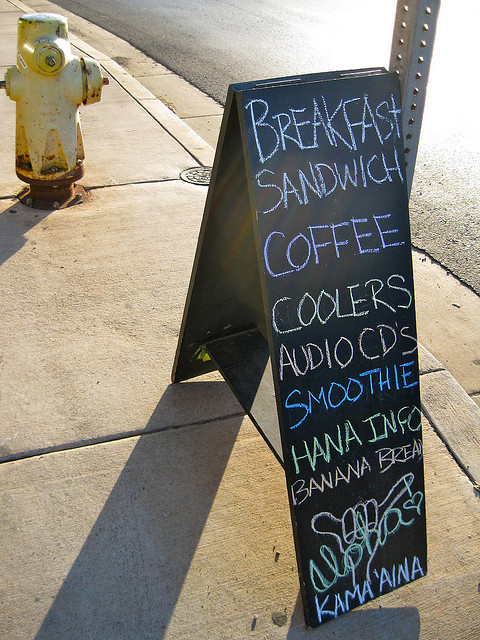 BREAKFAST
SANDWICH
COFFEE
COOLERS
AUDIO CD'S
SMOOTHIE
HANA INFO
BANANA BREAD
Aloha
KAMA'AINA